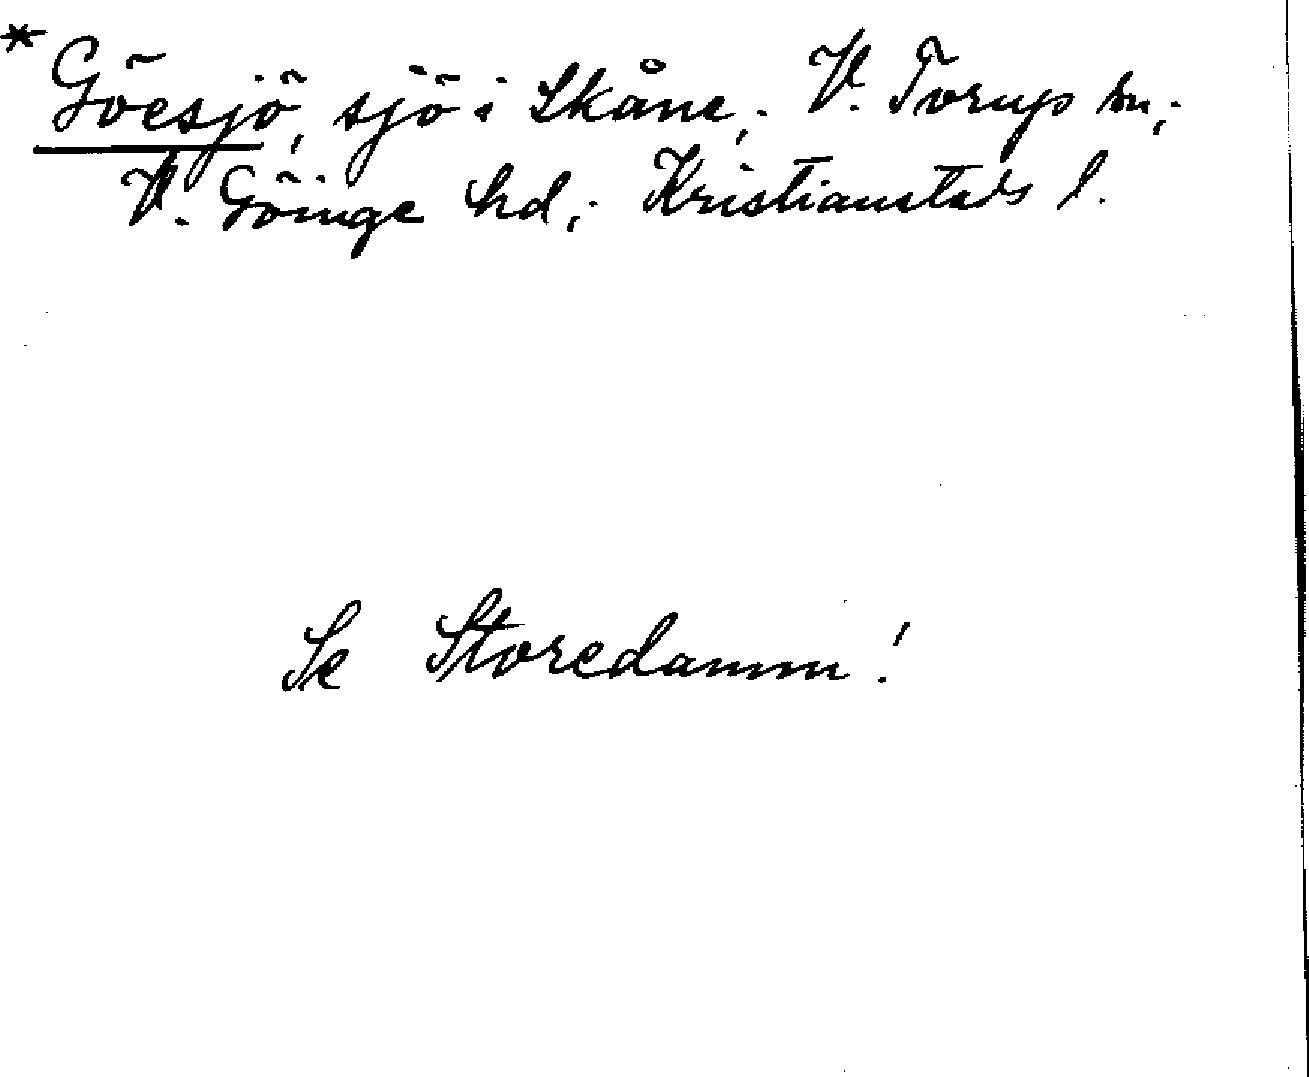 * Göesjö, sjö i Skåne; V. Torup sn;
V. Göinge hd; Kristianstads l.
Se Storedamm!